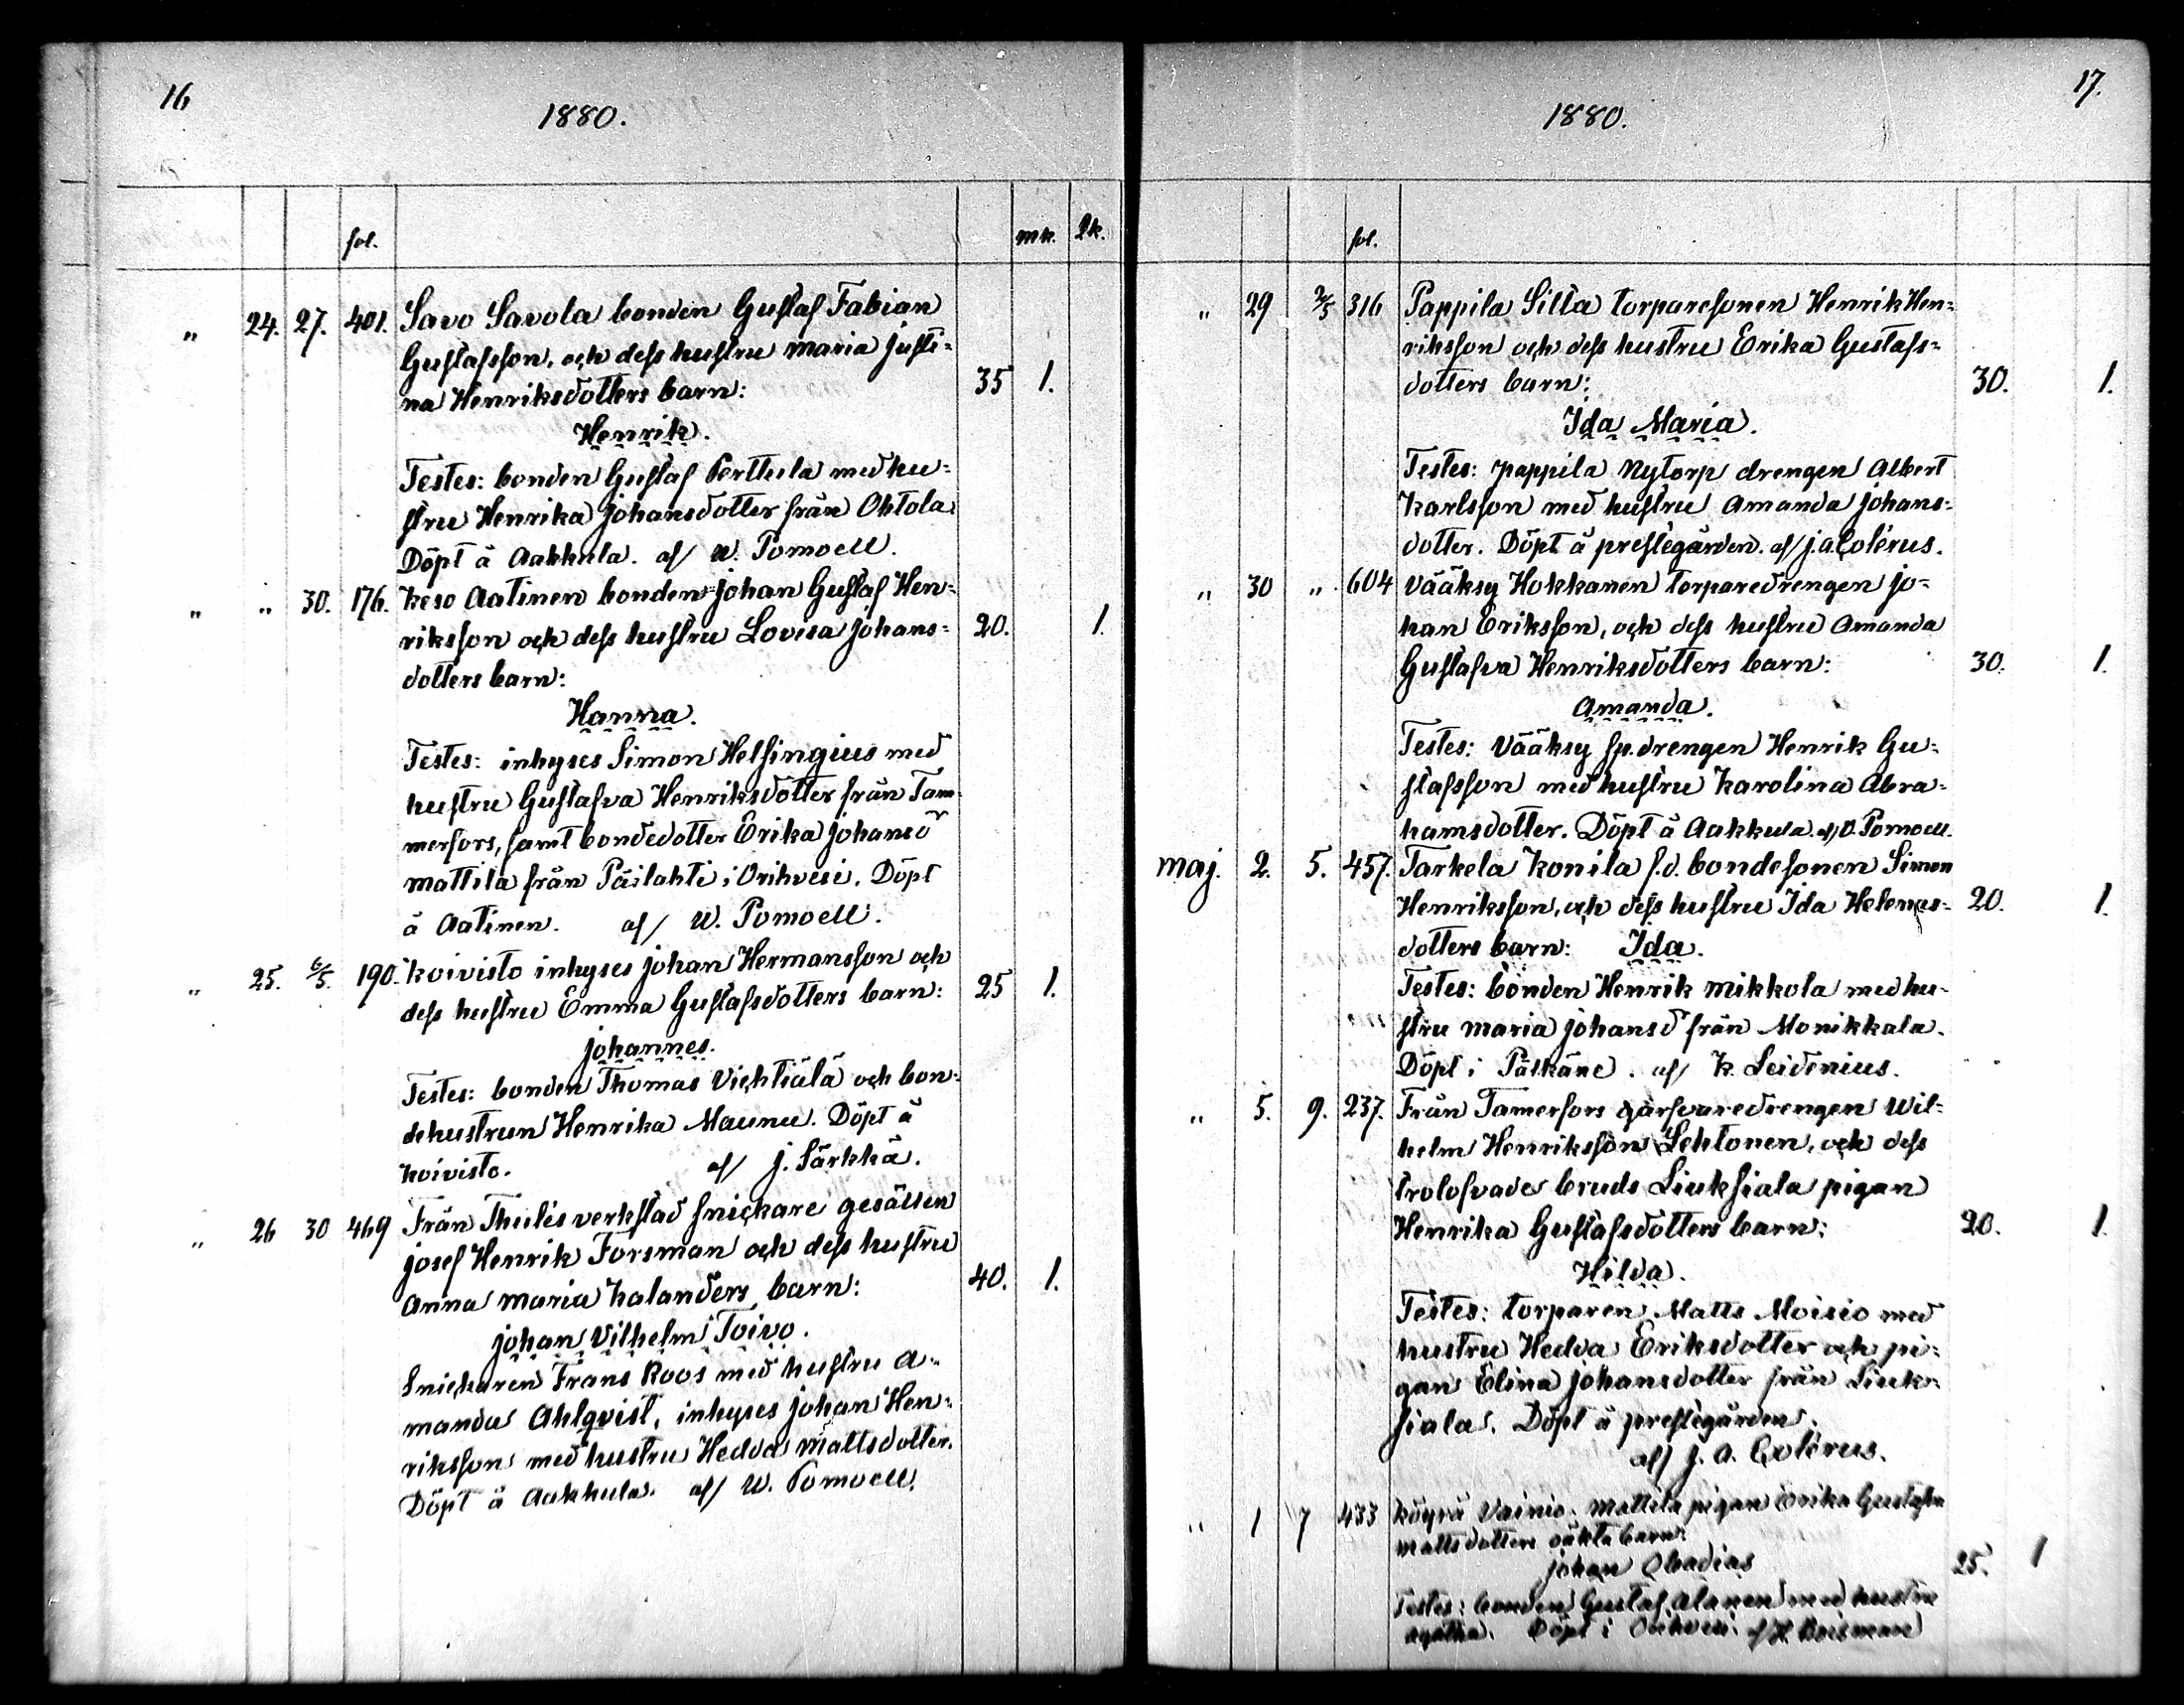 16
1880.
fol. mk. qk.
" 24. 27. 401. Savo Savola bonden Gustaf Fabian
Gustafsson, och dess hustru Maria Justi-
na Henriksdotters barn: 35 1.
Henrik.
Testes: bonden Gustaf Perttula med hu-
stru Henrika Johansdotter från Ohtola
Döpt å Aakkula. af/ W. Pomoell.
" " 30. 176. Keso Aatinen bonden Johan Gustaf Hen-
riksson och dess hustru Lovisa Johans- 20. 1.
dotters barn:
Hanna.
Testes: inhyses Simon Helsingius med
hustru Gustafva Henriksdotter från Tam-
merfors, samt bondedotter Erika Johansd
Mattila från Päilahti i Orihvesi. Döpt
å Aatinen. af/ W. Pomoell.
" 25. 6/5. 190. Koivisto inhyses Johan Hermansson och
dess hustru Emma Gustafsdotters barn: 25 1.
Johannes.
Testes: bonden Thomas Viehtiälä och bon-
dehustrun Henrika Maunu. Döpt å
Koivisto. af/ J. Särkkä.
" 26 30 469 Från Thulés verkstad snickare gesällen
Josef Henrik Forsman och dess hustru
Anna Maria Kalanders barn: 40. 1.
Johan Vilhelm Toivo.
Snickaren Frans Roos med hustru A-
manda Ahlqvist, inhyses Johan Hen-
riksson med hustru Hedda Mattsdotter.
Döpt å Aakkula. af/ W. Pomoell.
17.
1880.
fol.
" 29 2/5 316 Pappila Silta torparesonen Henrik Hen-
riksson och dess hustru Erika Gustafs-
dotters barn: 30. 1.
Ida Maria.
Testes: Pappila Nytorp drengen Albert
Karlsson med hustru Amanda Johans-
dotter. Döpt å prestegården. af/ J. A. Colérus.
" 30 " 604 Vääksy Hokkanen torparedrengen Jo-
han Eriksson, och dess hustru Amanda
Gustafva Henriksdotters barn: 30. 1.
Amanda.
Testes: Vääksy sp. drengen Henrik Gu-
stafsson med hustru Karolina Abra-
hamsdotter. Döpt å Aakkula af/ V. Pomoell.
Maj. 2. 5. 457. Tarkela Konila f.d. bondesonen Simon
Henriksson, och dess hustru Ida Helenas- 20. 1.
dotters barn: Ida.
Testes: bonden Henrik Mikkola med hu-
stru Maria Johansd från Monikkala.
Döpt i Pälkäne. af/ K. Leidenius.
" 5. 9. 237. Från Tamerfors garfvaredrengen Wil-
helm Henriksson Lehtonen, och dess
trolofvade bruds Liuksiala pigan
Henrika Gustafsdotters barn: 20. 1.
Hilda.
Testes: torparen Matts Moisio med
hustru Hedda Eriksdotter och pi-
gan Elina Johansdotter från Liuk-
siala. Döpt å prestegården.
af/ J. A. Colérus.
" 1 7 433 Köyrä Vainio. Mattila pigan Erika Gustafva
Mattsdotters oäkta barn:
Johan Obadias 25. 1
Testes: bonden Gustaf Alanen med hustru
Agatha. Döpt i Orihvesi. af H.